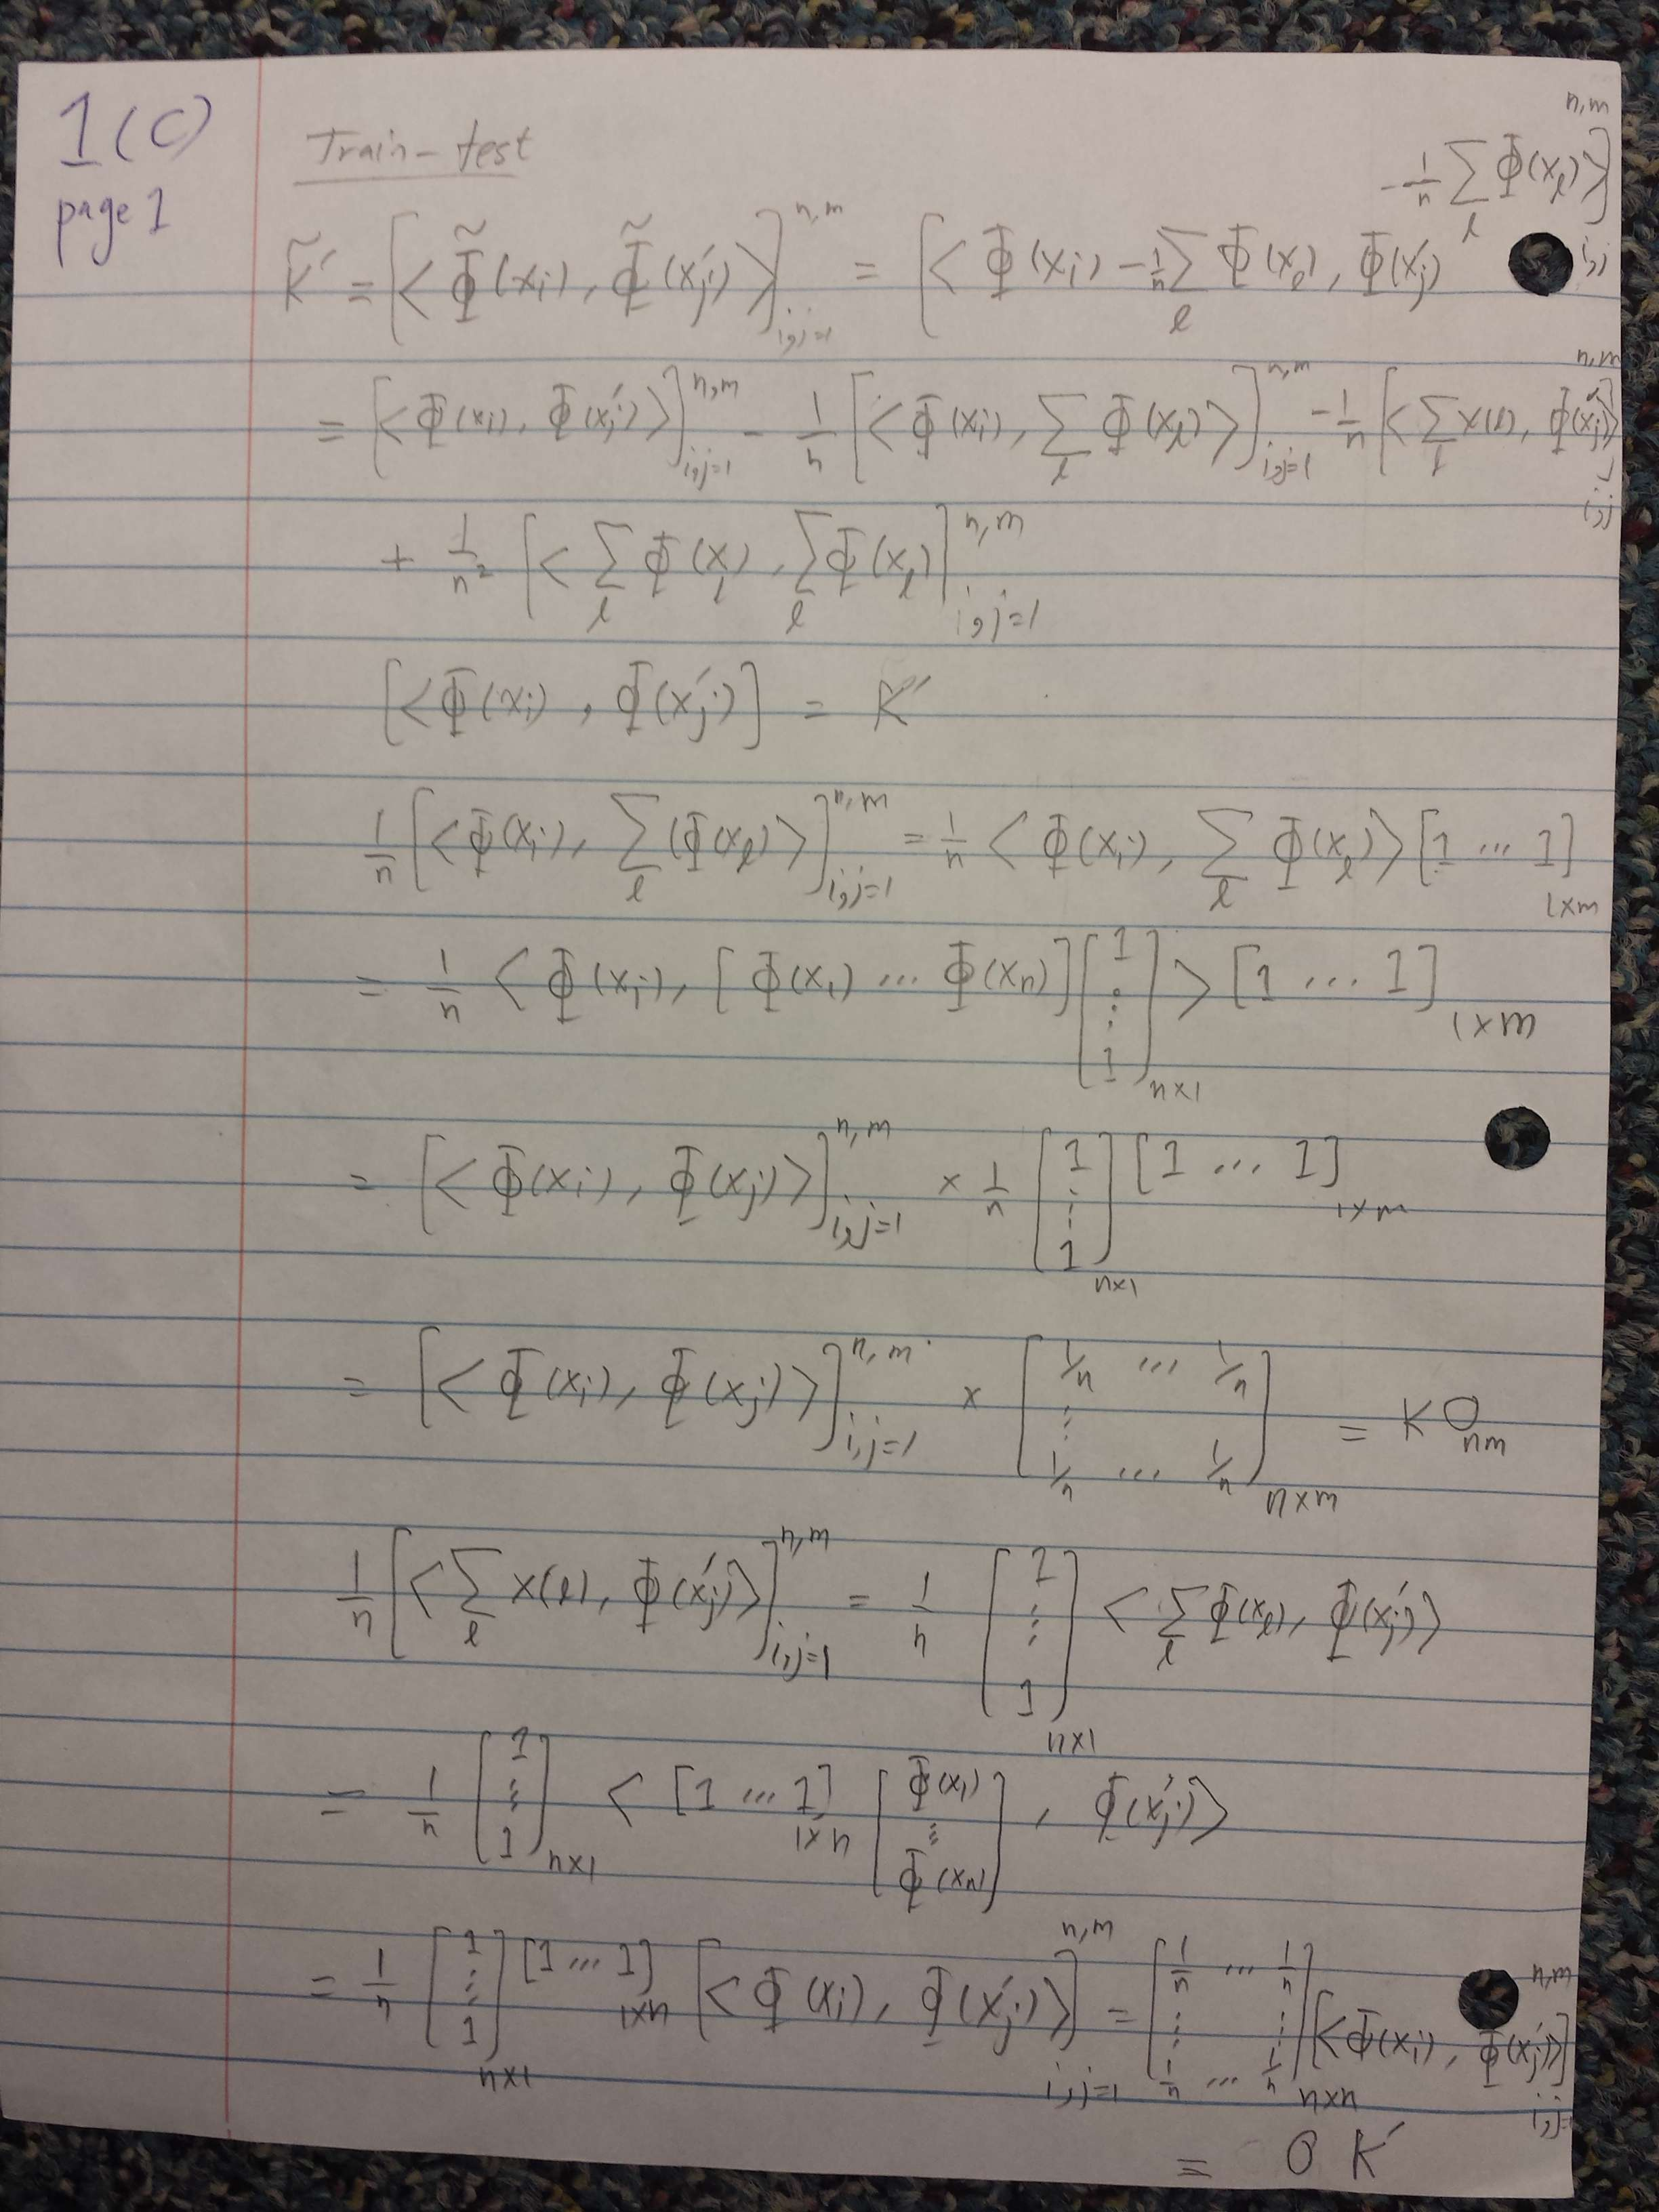 1(C)
page 1
Train-test
K̃′ = [<Φ̃(xᵢ), Φ̃(x′ⱼ)>]ⁿ,ᵐ i,j=1 = [<Φ(xᵢ) - 1/n Σ_l Φ(x_l), Φ(x′ⱼ) - 1/n Σ_l Φ(x_l)>]ⁿ,ᵐ i,j
= [<Φ(xᵢ), Φ(x′ⱼ)>]ⁿ,ᵐ i,j=1 - 1/n [<Φ(xᵢ), Σ_l Φ(x_l)>]ⁿ,ᵐ i,j=1 - 1/n [<Σ_l x(l), Φ(x′ⱼ)>]ⁿ,ᵐ i,j
+ 1/n² [<Σ_l Φ(x_l), Σ_l Φ(x_l)]ⁿ,ᵐ i,j=1
[<Φ(xᵢ), Φ(x′ⱼ)] = K′
1/n [<Φ(xᵢ), Σ_l (Φ(x_l)>]ⁿ,ᵐ i,j=1 = 1/n <Φ(xᵢ), Σ_l Φ(x_l)> [1 ... 1] 1×m
= 1/n <Φ(xᵢ), [Φ(x₁) ... Φ(xn)] [1 ⋮ 1] n×1 > [1 ... 1] 1×m
= [<Φ(xᵢ), Φ(xⱼ)>]ⁿ,ᵐ i,j=1 × 1/n [1 ⋮ 1] n×1 [1 ... 1] 1×m
= [<Φ(xᵢ), Φ(xⱼ)>]ⁿ,ᵐ i,j=1 × [1/n ... 1/n ⋮ 1/n ... 1/n] n×m = K O nm
1/n [<Σ_l x(l), Φ(x′ⱼ)>]ⁿ,ᵐ i,j=1 = 1/n [1 ⋮ 1] n×1 <Σ_l Φ(x_l), Φ(x′ⱼ)>
= 1/n [1 ⋮ 1] n×1 < [1 ... 1] 1×n [Φ(x₁) ⋮ Φ(xn)], Φ(x′ⱼ)>
= 1/n [1 ⋮ 1] n×1 [1 ... 1] 1×n [<Φ(xᵢ), Φ(x′ⱼ)>]ⁿ,ᵐ i,j=1 = [1/n ... 1/n ⋮ ⋮ 1/n ... 1/n] n×n [<Φ(xᵢ), Φ(x′ⱼ)>]ⁿ,ᵐ i,j=
= O K′